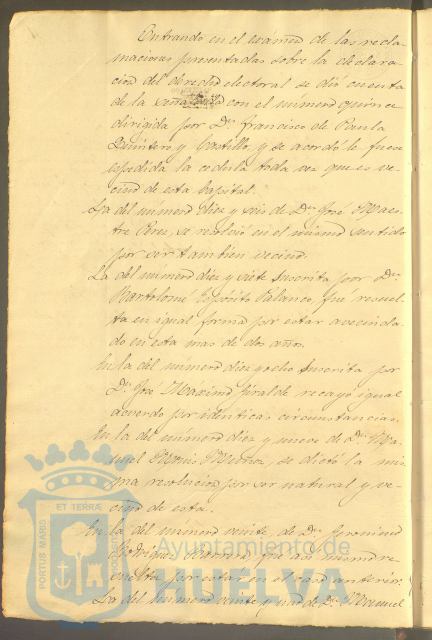 Entrando en el examen de las recla
maciones presentadas sobre la declara
cion del derecho electoral se dió cuenta
de la señalada con el número quince
dirigida por Dn. Francisco de Paula
Quintero y Castillo, y se acordó le fuese
espedida la cedula toda vez que es ve-
cino de esta Capital.
La del número diez y seis de Dn. José Maes-
tre Perez, se resolvió en el mismo sentido
por ser tambien vecino.
La del número diez y siete suscrita por Dn.
Bartolomé Espósito Palanco, fue resuel-
ta en igual forma por estar avecinda
do en esta mas de dos años.
En la del número diez y ocho suscrita por
Dn. José Máximo Giralde recayó igual
acuerdo por identicas circunstancias.
En la del número diez y nueve de Dn. Ma-
nuel Muñoz, se dictó la mis
ma resolucion por ser natural y ve-
cino de esta.
En la del número veinte, de Dn. Geronimo
Rodriguez
por estar en el caso anterior.
La del número veinte y uno de Dn. Manuel
PORTUS MARIS ET TERRÆ CUSTODIA
Ayuntamiento de
HUELVA